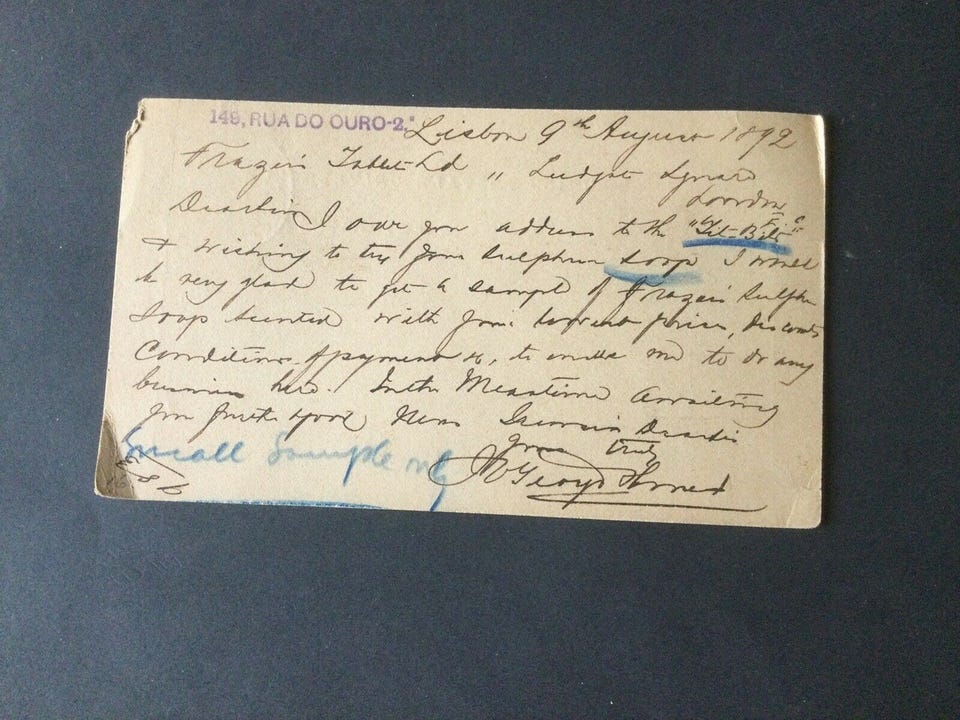 149, RUA DO OURO-2.º Lisbon 9th August 1892
Frazer's Tablet Ld " Ludgate Square
London
Dear Sir I owe your address to the "Tit-Bits"
& wishing to try your Sulphur Soap I would
be very glad to get a sample of Frazer's Sulphur
Soap scented with your lowest prices, discounts
Conditions of payment &, to enable me to do any
business here. In the Meantime Awaiting
your further good News I remain Dear Sir
Yours truly
Small Sample